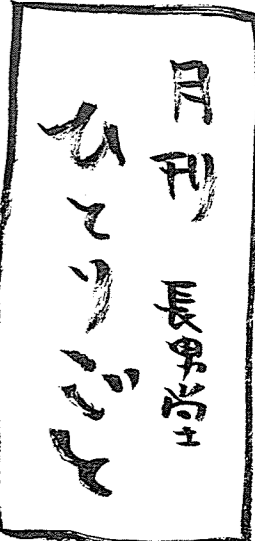 月刊 長男堂
ひとりごと